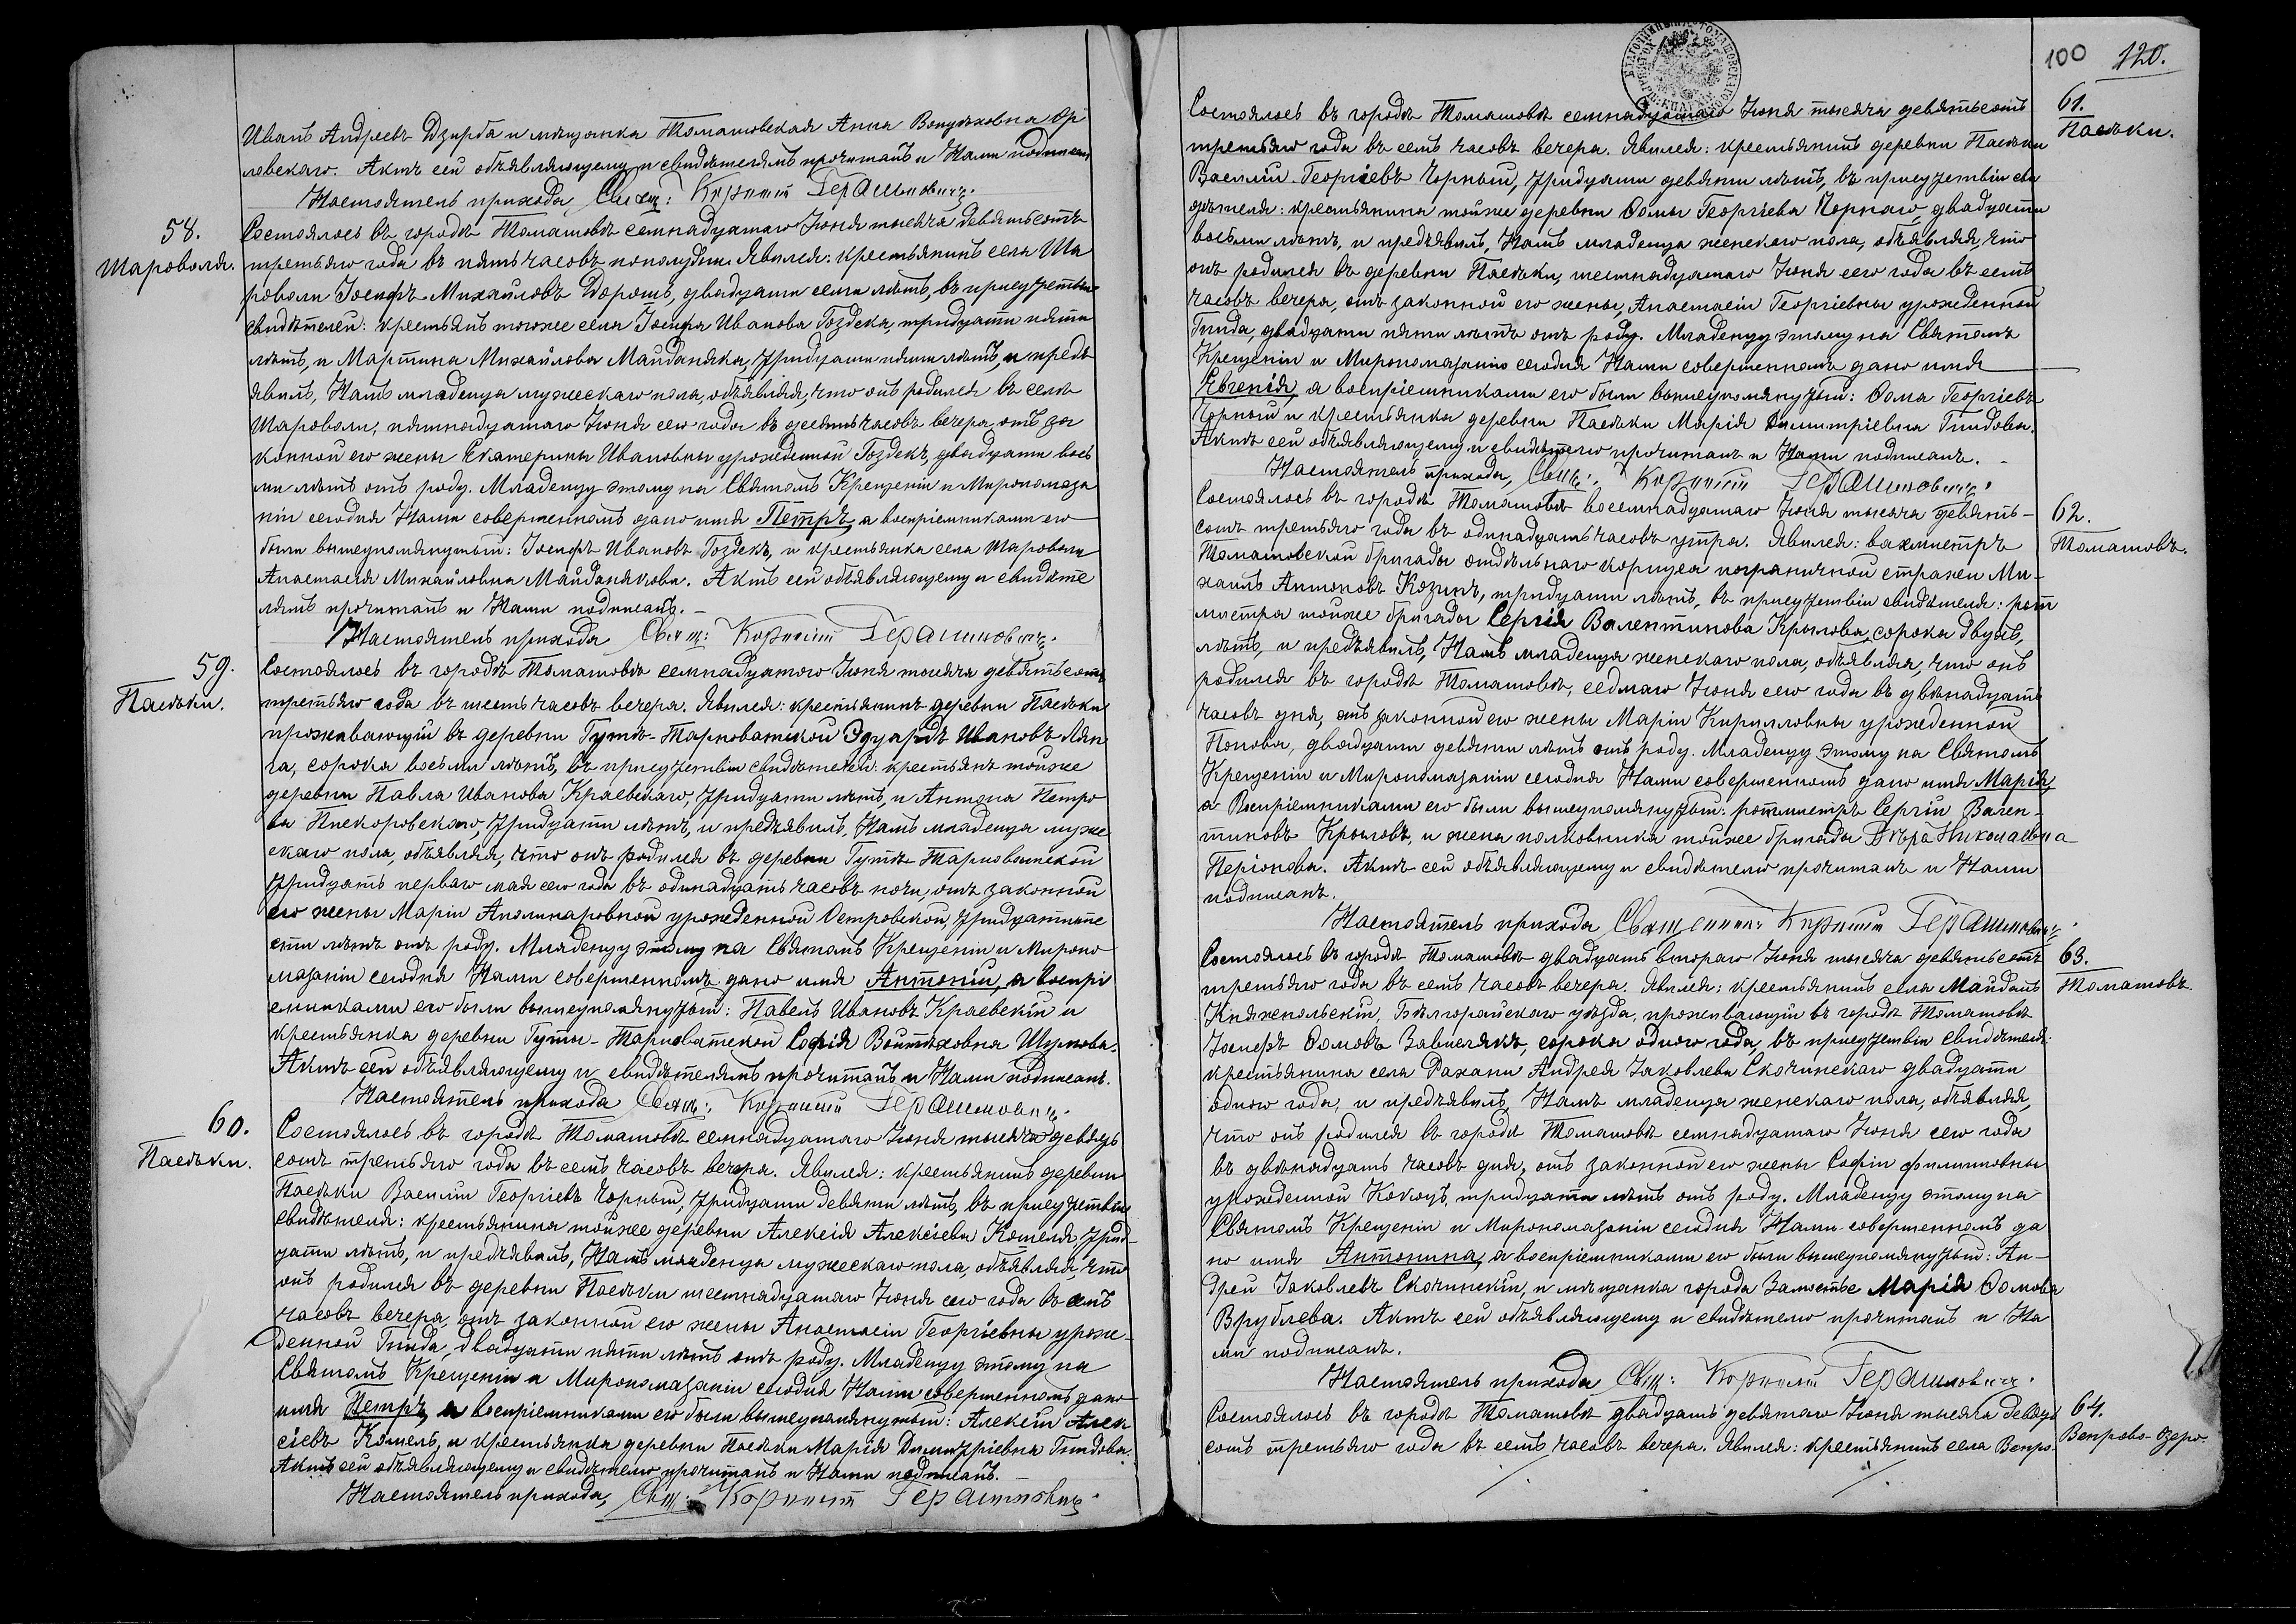 Иванъ Андреевъ Дзирба и мѣщанка Томашовская Анна Войцѣховна Ор
левскаго. Актъ сей объявляющему и свидѣтелямъ прочитанъ и Нами подписанъ
Настоятель прихода Свящ: Корнилій Герашиновичъ.
58.
Шароволя.
Состоялось въ городѣ Томашовѣ семнадцатаго Іюня тысяча девятьсотъ
третьяго года въ пять часовъ пополудни. Явился: крестьянинъ села Ша
роволи Іосифъ Михайловъ Дорошъ, двадцати семи лѣтъ, въ присутствіи
свидѣтелей: крестьянъ тогоже села Іосифа Иванова Гоздека, тридцати пяти
лѣтъ, и Мартина Михайлова Майданяка, тридцати пяти лѣтъ, и предъ
явилъ, Намъ младенца мужескаго пола, объявляя, что онъ родился въ селѣ
Шароволи, пятнадцатаго Іюня сего года въ десять часовъ вечера отъ за
конной его жены Екатерины Ивановны урожденной Гоздекъ, двадцати вось
ми лѣтъ отъ роду. Младенцу этому на Святомъ Крещеніи и Миропомаза
ніи сегодня Нами совершенномъ дано имя Петръ, а воспріемниками его
были вышеупомянутый: Іосифъ Ивановъ Гоздекъ, и крестьянка села Шароволи
Анастасія Михайловна Майданякова. Актъ сей объявляющему и свидѣте
лямъ прочитанъ и Нами подписанъ. –
Настоятель прихода Свящ: Корнилій Герашиновичъ.
59.
Пасѣки.
Состоялось въ городѣ Томашовѣ семнадцатого Іюня тысяча девятьсотъ
третьяго года въ шесть часовъ вечера. Явился: крестьянинъ деревни Пасѣки
проживающій въ деревни Гутѣ-Тарноватской Эдуардъ Ивановъ
сорока восьми лѣтъ, въ присутствіи свидѣтелей: крестьянъ тойже
деревни Павла Иванова Краевскаго, тридцати лѣтъ, и Антона Петро
ва Пнекоровскаго, тридцати лѣтъ, и предъявилъ, Намъ младенца муже
скаго пола, объявляя, что онъ родился въ деревни Гутѣ-Тарноватской
тридцать перваго мая сего года въ одинадцать часовъ ночи, отъ законной
его жены Маріи Аполинаровной урожденной Островской, тридцати ше
сти лѣтъ отъ роду. Младенцу этому на Святомъ Крещеніи и Миропо
мазаніи сегодня Нами совершенномъ дано имя Антоній, а воспрі
емниками его были вышеупомянутый: Павелъ Ивановъ Краевскій и
крестьянка деревни Гуты-Тарноватской Софія Войтѣховна Шуркова.
Актъ сей объявляющему и свидѣтелямъ прочитанъ и Нами подписанъ.
Настоятель прихода Свящ: Корнилій Герашиновичъ.
60.
Пасѣки.
Состоялось въ городѣ Томашовѣ семнадцатаго Іюня тысяча девять
сотъ третьяго года въ семь часовъ вечера. Явился: крестьянинъ деревни
Пасѣки Василій Георгіевъ Чорный, тридцати девяти лѣтъ, въ присутствіи
свидѣтеля: крестьянина тойже деревни Алексія Алексіева Комеля, трид
цати лѣтъ, и предъявилъ, Намъ младенца мужескаго пола, объявляя, что
онъ родился въ деревни Пасѣки шестнадцатаго Іюня сего года въ семь
часовъ вечера, отъ законной его жены Анастасіи Георгіевны урож-
денной Гнида, двадцати пяти лѣтъ отъ роду. Младенцу этому на
Святомъ Крещеніи и Миропомазаніи сегодня Нами совершенномъ дано
имя Петръ, а воспріемниками его были вышеупомянутый: Алексій Алек
сіевъ Комель, и крестьянка деревни Пасѣки Марія Димитріевна Гнидова.
Актъ сей объявляющему и свидѣтелю прочитанъ и Нами подписанъ.
Настоятель прихода, Свящ: Корнилій Герашиновичъ
100 120.
61.
Пасѣки.
Состоялось въ городѣ Томашовѣ семнадцатаго Іюня тысяча девятьсотъ
третьяго года въ семь часовъ вечера. Явился: крестьянинъ деревни Пасѣки
Василій Георгіевъ Чорный, тридцати девяти лѣтъ, въ присутствіи сви
дѣтеля: крестьянина тойже деревни Ѳомы Георгіева Чорнаго, двадцати
восьми лѣтъ, и предъявилъ, Намъ младенца женскаго пола, объявляя, что
онъ родился въ деревни Пасѣки, шестнадцатаго Іюня сего года въ семь
часовъ вечера, отъ законной его жены, Анастасіи Георгіевны урожденной
Гнида, двадцати пяти лѣтъ отъ роду. Младенцу этому на Святомъ
Крещеніи и Миропомазаніи сегодня Нами совершенномъ дано имя
Евгенія, а воспріемниками его были вышеупомянутый: Ѳома Георгіевъ
Чорный и крестьянка деревни Пасѣки Марія Димитріевна Гнидова.
Актъ сей объявляющему и свидѣтелю прочитанъ и Нами подписанъ. –
Настоятель прихода, Свящ: Корнилій Герашиновичъ.
62.
Томашовъ.
Состоялось въ городѣ Томашовѣ восемнадцатаго Іюня тысяча девять-
сотъ третьяго года въ одинадцать часовъ утра. Явился: вахмистръ
Томашовской бригады отдѣльнаго корпуса пограничной стражи Ми-
хаилъ Антоновъ Козинъ, тридцати лѣтъ, въ присутствіи свидѣтеля: рот
мистра тойже бригады Сергія Валентинова Крылова, сорока двухъ
лѣтъ, и предъявилъ, Намъ младенца женскаго пола, объявляя, что онъ
родился въ городѣ Томашовѣ, седмаго Іюня сего года въ двѣнадцать
часовъ дня, отъ законной его жены Маріи Кирилловны урожденной
Попова, двадцати девяти лѣтъ отъ роду. Младенцу этому на Святомъ
Крещеніи и Миропомазаніи сегодня Нами совершенномъ дано имя Марія,
а Воспріемниками его были вышеупомянутый: ротмистръ Сергій Вален-
тиновъ Крыловъ, и жена полковника тойже бригады Вѣра Николаевна
Періонова. Актъ сей объявляющему и свидѣтелю прочитанъ и Нами
подписанъ.
Настоятель прихода Священникъ Корнилій Герашиновичъ
63.
Томашовъ.
Состоялось въ городѣ Томашовѣ двадцать втораго Іюня тысяча девятьсотъ
третьяго года въ семь часовъ вечера. Явился: крестьянинъ села Майданъ
Княжпольскій, Бѣлгорайскаго уѣзда, проживающій въ городѣ Томашовѣ
Іосифъ Ѳомовъ Завислякъ, сорока одного года, въ присутствіи свидѣтеля:
крестьянина села Рахани Андрея Іаковлева Скочинскаго двадцати
одного года, и предъявилъ, Намъ младенца женскаго пола, объявляя,
что онъ родился въ городѣ Томашовѣ семнадцатаго Іюня сего года
въ двѣнадцать часовъ дня, отъ законной его жены Софіи Филипповны
урожденной Кокоцъ, тридцати лѣтъ отъ роду. Младенцу этому на
Святомъ Крещеніи и Миропомазаніи сегодня Нами совершенномъ да
но имя Антонина, а воспріемниками его были вышеупомянутый: Ан-
дрей Іаковлевъ Скочинскій, и мѣщанка города Замостье Марія Ѳомова
Врублева. Актъ сей объявляющему и свидѣтелю прочитанъ и На
ми подписанъ.
Настоятель прихода Свящ: Корнилій Герашиновичъ.
64.
Вепрово-Озеро.
Состоялось въ городѣ Томашовѣ двадцать девятаго Іюня тысяча девять
сотъ третьяго года въ семь часовъ вечера. Явился: крестьянинъ села Вепро-